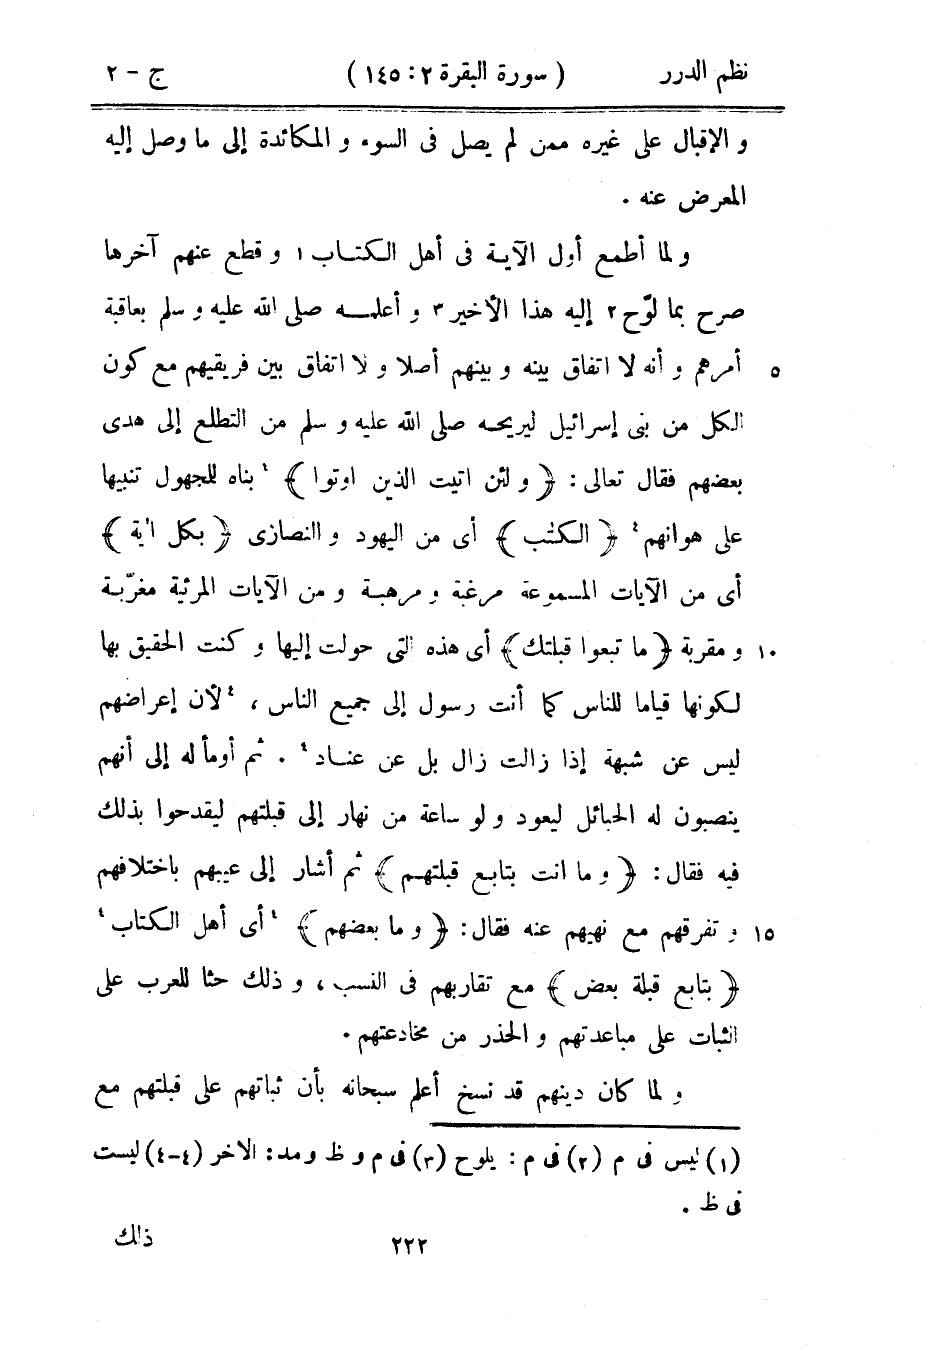 نظم الدرر ( سورة البقرة ٢ : ١٤٥ ) ج - ٢
و الإقبال على غيره ممن لم يصل فى السوء و المكائدة إلى ما وصل إليه
المعرض عنه .
و لما أطمع أول الآية فى أهل الكتاب ١ و قطع عنهم آخرها
صرح بما لوّح ٢ إليه هذا الأخير ٣ و أعلمه صلى الله عليه و سلم بعاقبة
٥ أمرهم و أنه لا اتفاق بينه و بينهم أصلا و لا اتفاق بين فريقيهم مع كون
الكل من بنى إسرائيل ليريحه صلى الله عليه و سلم من التطلع إلى هدى
بعضهم فقال تعالى : ﴿ و لئن اتيت الذين اوتوا ﴾ ٤ بناه للجهول تنبيها
على هوانهم ٤ ﴿ الكتٰب ﴾ أى من اليهود و النصارى ﴿ بكل اٰية ﴾
أى من الآيات المسموعة مرغبة و مرهبة و من الآيات المرئية مغرّبة
١٠ و مقربة ﴿ ما تبعوا قبلتك ﴾ أى هذه التى حولت إليها و كنت الحقيق بها
لكونها قياما للناس كما أنت رسول إلى جميع الناس ، ٤ لأن إعراضهم
ليس عن شبهة إذا زالت زال بل عن عناد ٤ . ثم أومأ له إلى أنهم
ينصبون له الحبائل ليعود و لو ساعة من نهار إلى قبلتهم ليقدحوا بذلك
فيه فقال : ﴿ و ما انت بتابع قبلتهم ﴾ ثم أشار إلى عيبهم باختلافهم
١٥ و تفرقهم مع نهيهم عنه فقال : ﴿ و ما بعضهم ﴾ ٤ أى أهل الكتاب ٤
﴿ بتابع قبلة بعض ﴾ مع تقاربهم فى النسب ، و ذلك حثا للعرب على
الثبات على مباعدتهم و الحذر من مخادعتهم .
و لما كان دينهم قد نسخ أعلم سبحانه بأن ثباتهم على قبلتهم مع
(١) ليس فى م (٢) فى م : يلوح (٣) فى م و ظ و مد : الاخر (٤-٤) ليست
فى ظ .
٢٢٢ ذلك